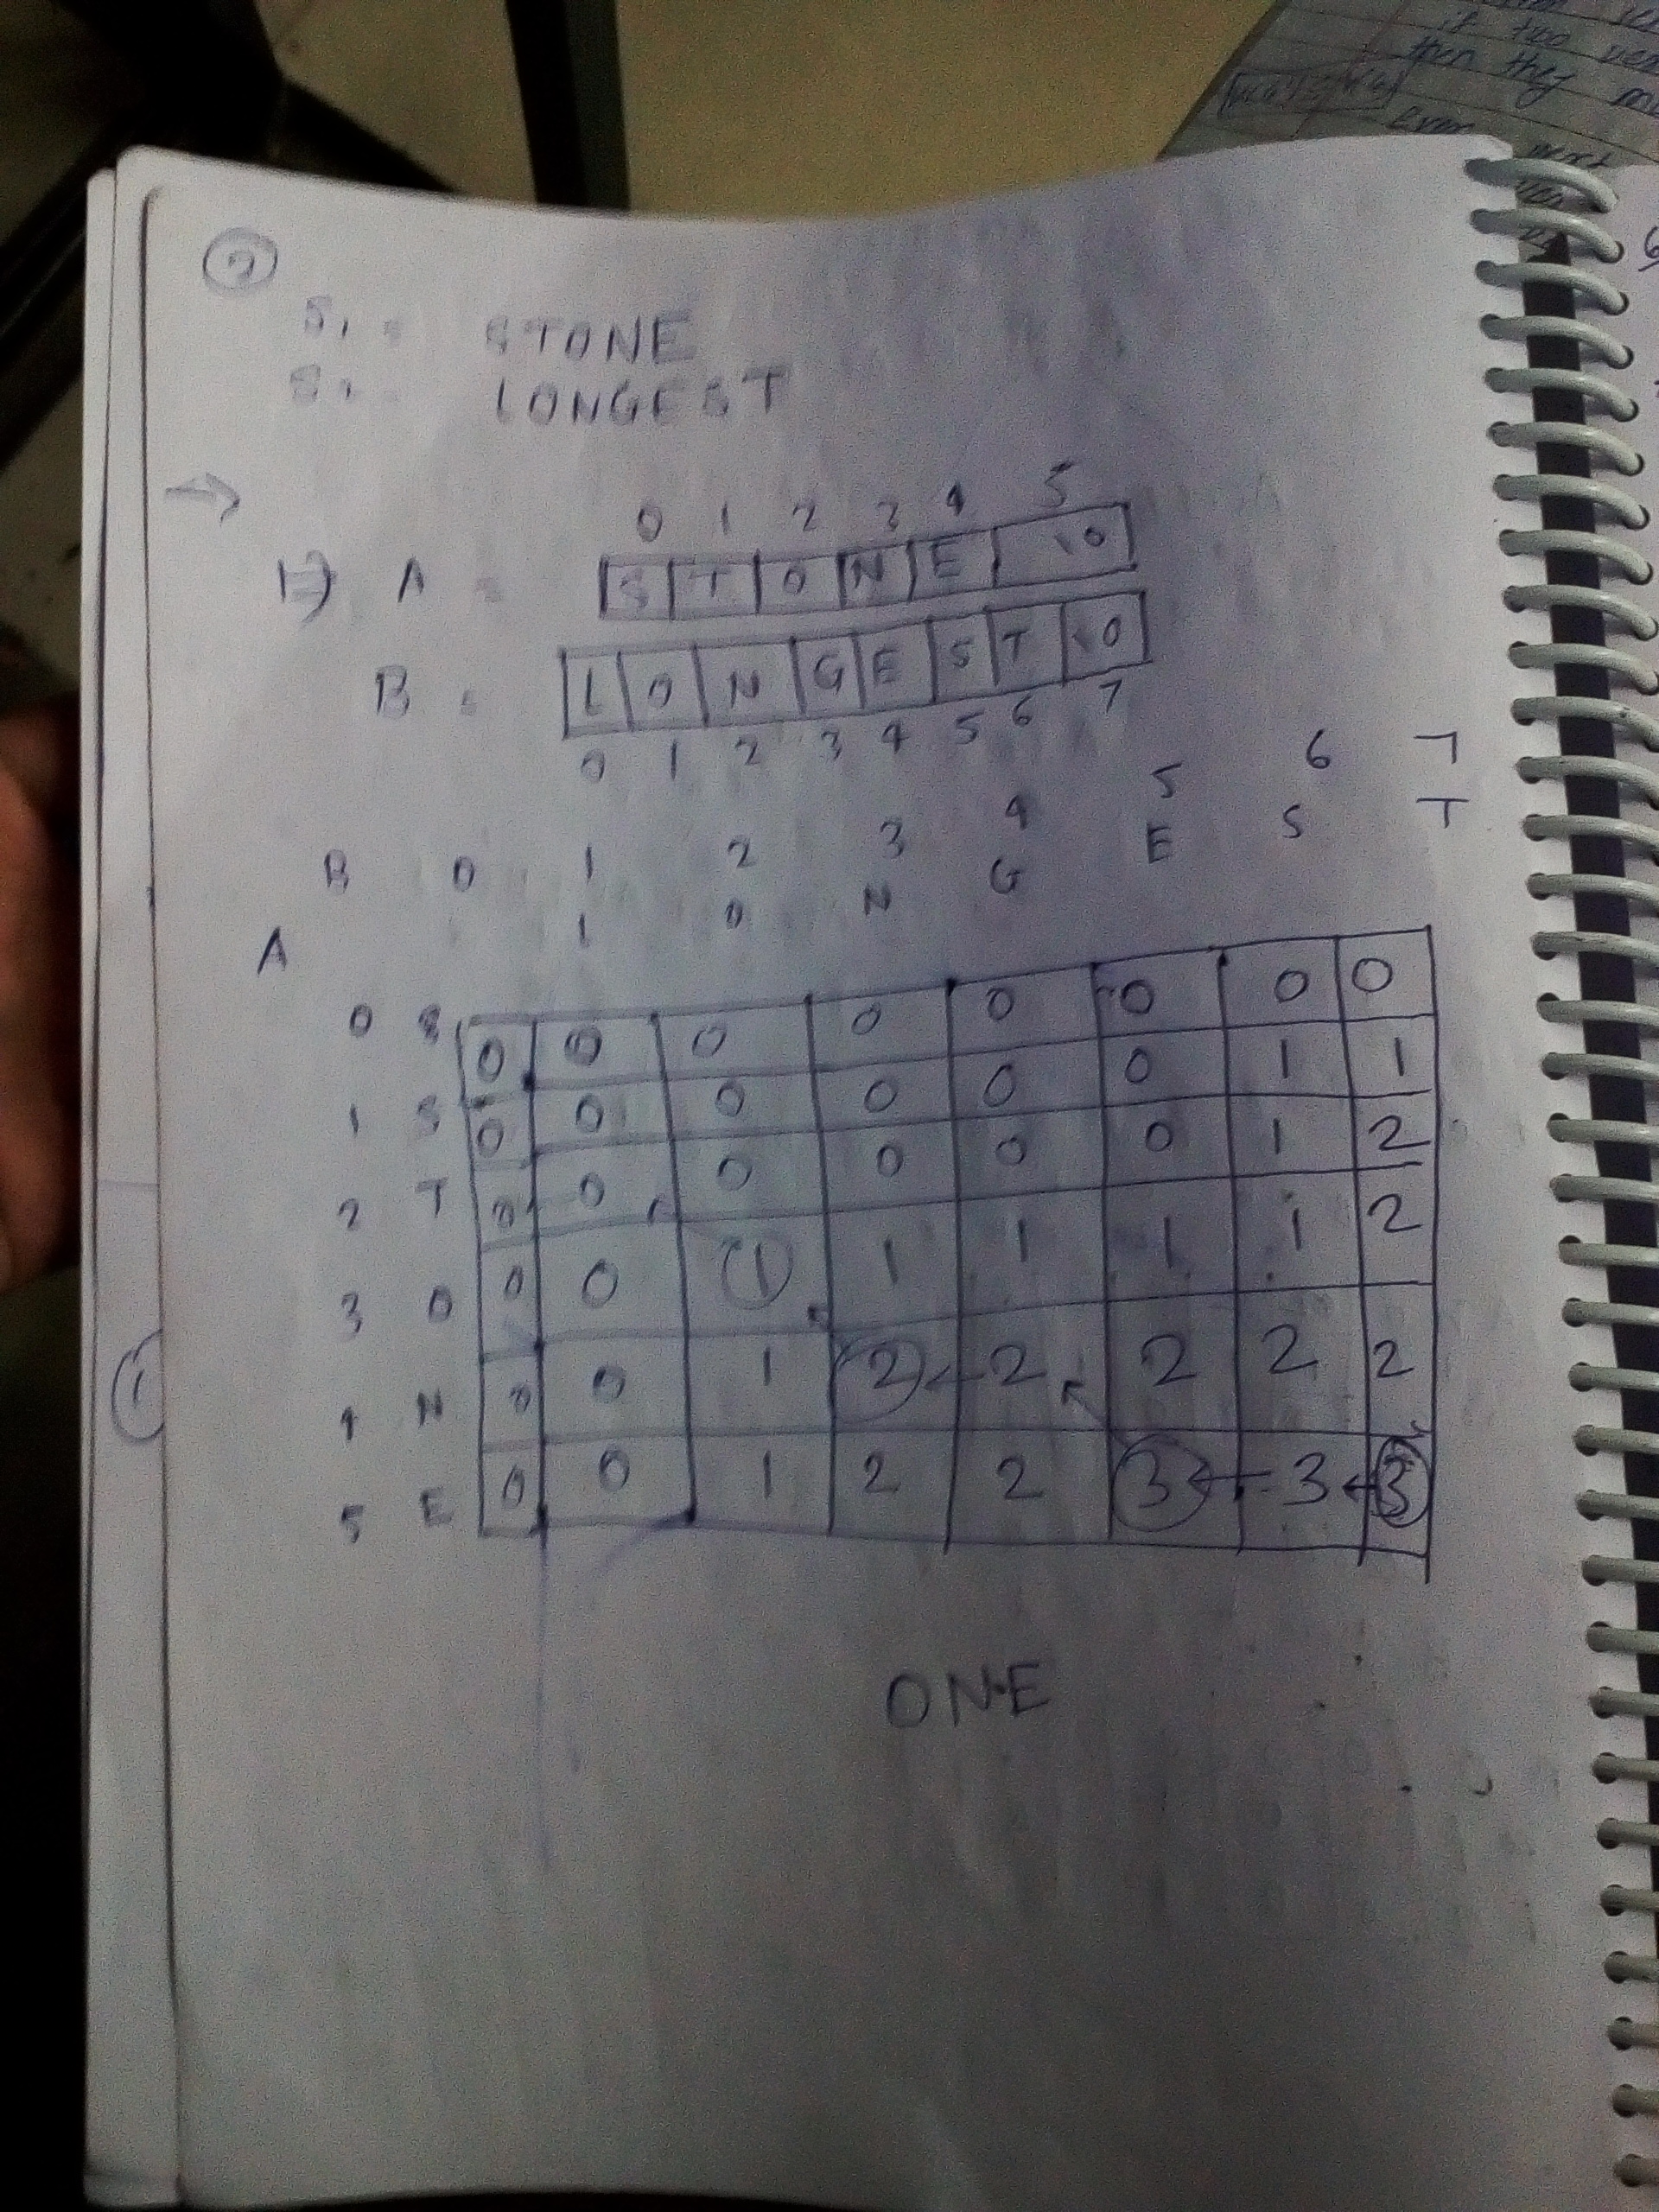 if two
then they
Even
next
2
S1 = STONE
S2 = LONGEST
→
0 1 2 3 4 5
1=) A = S T O N E \0
B = L O N G E S T \0
0 1 2 3 4 5 6 7
B 0 1 2 3 4 5 6 7
L O N G E S T
A
0 0 0 0 0 0 0 0 0
1 S 0 0 0 0 0 0 1 1
2 T 0 0 0 0 0 0 1 2
3 O 0 0 1 1 1 1 1 2
4 N 0 0 1 2 ← 2 2 2 2
5 E 0 0 1 2 2 3 ← 3 ← 3
ONE